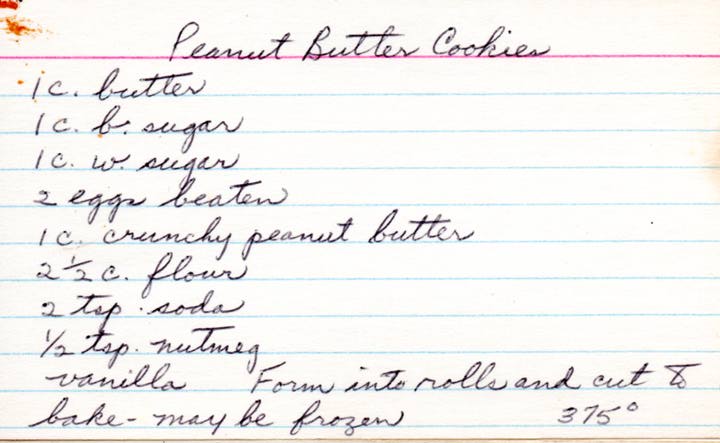 Peanut Butter Cookies
1 c. butter
1 c. b. sugar
1 c. w. sugar
2 eggs beaten
1 c. crunchy peanut butter
2 1/2 c. flour
2 tsp. soda
1/2 tsp. nutmeg
vanilla Form into rolls and cut to
bake - may be frozen 375°